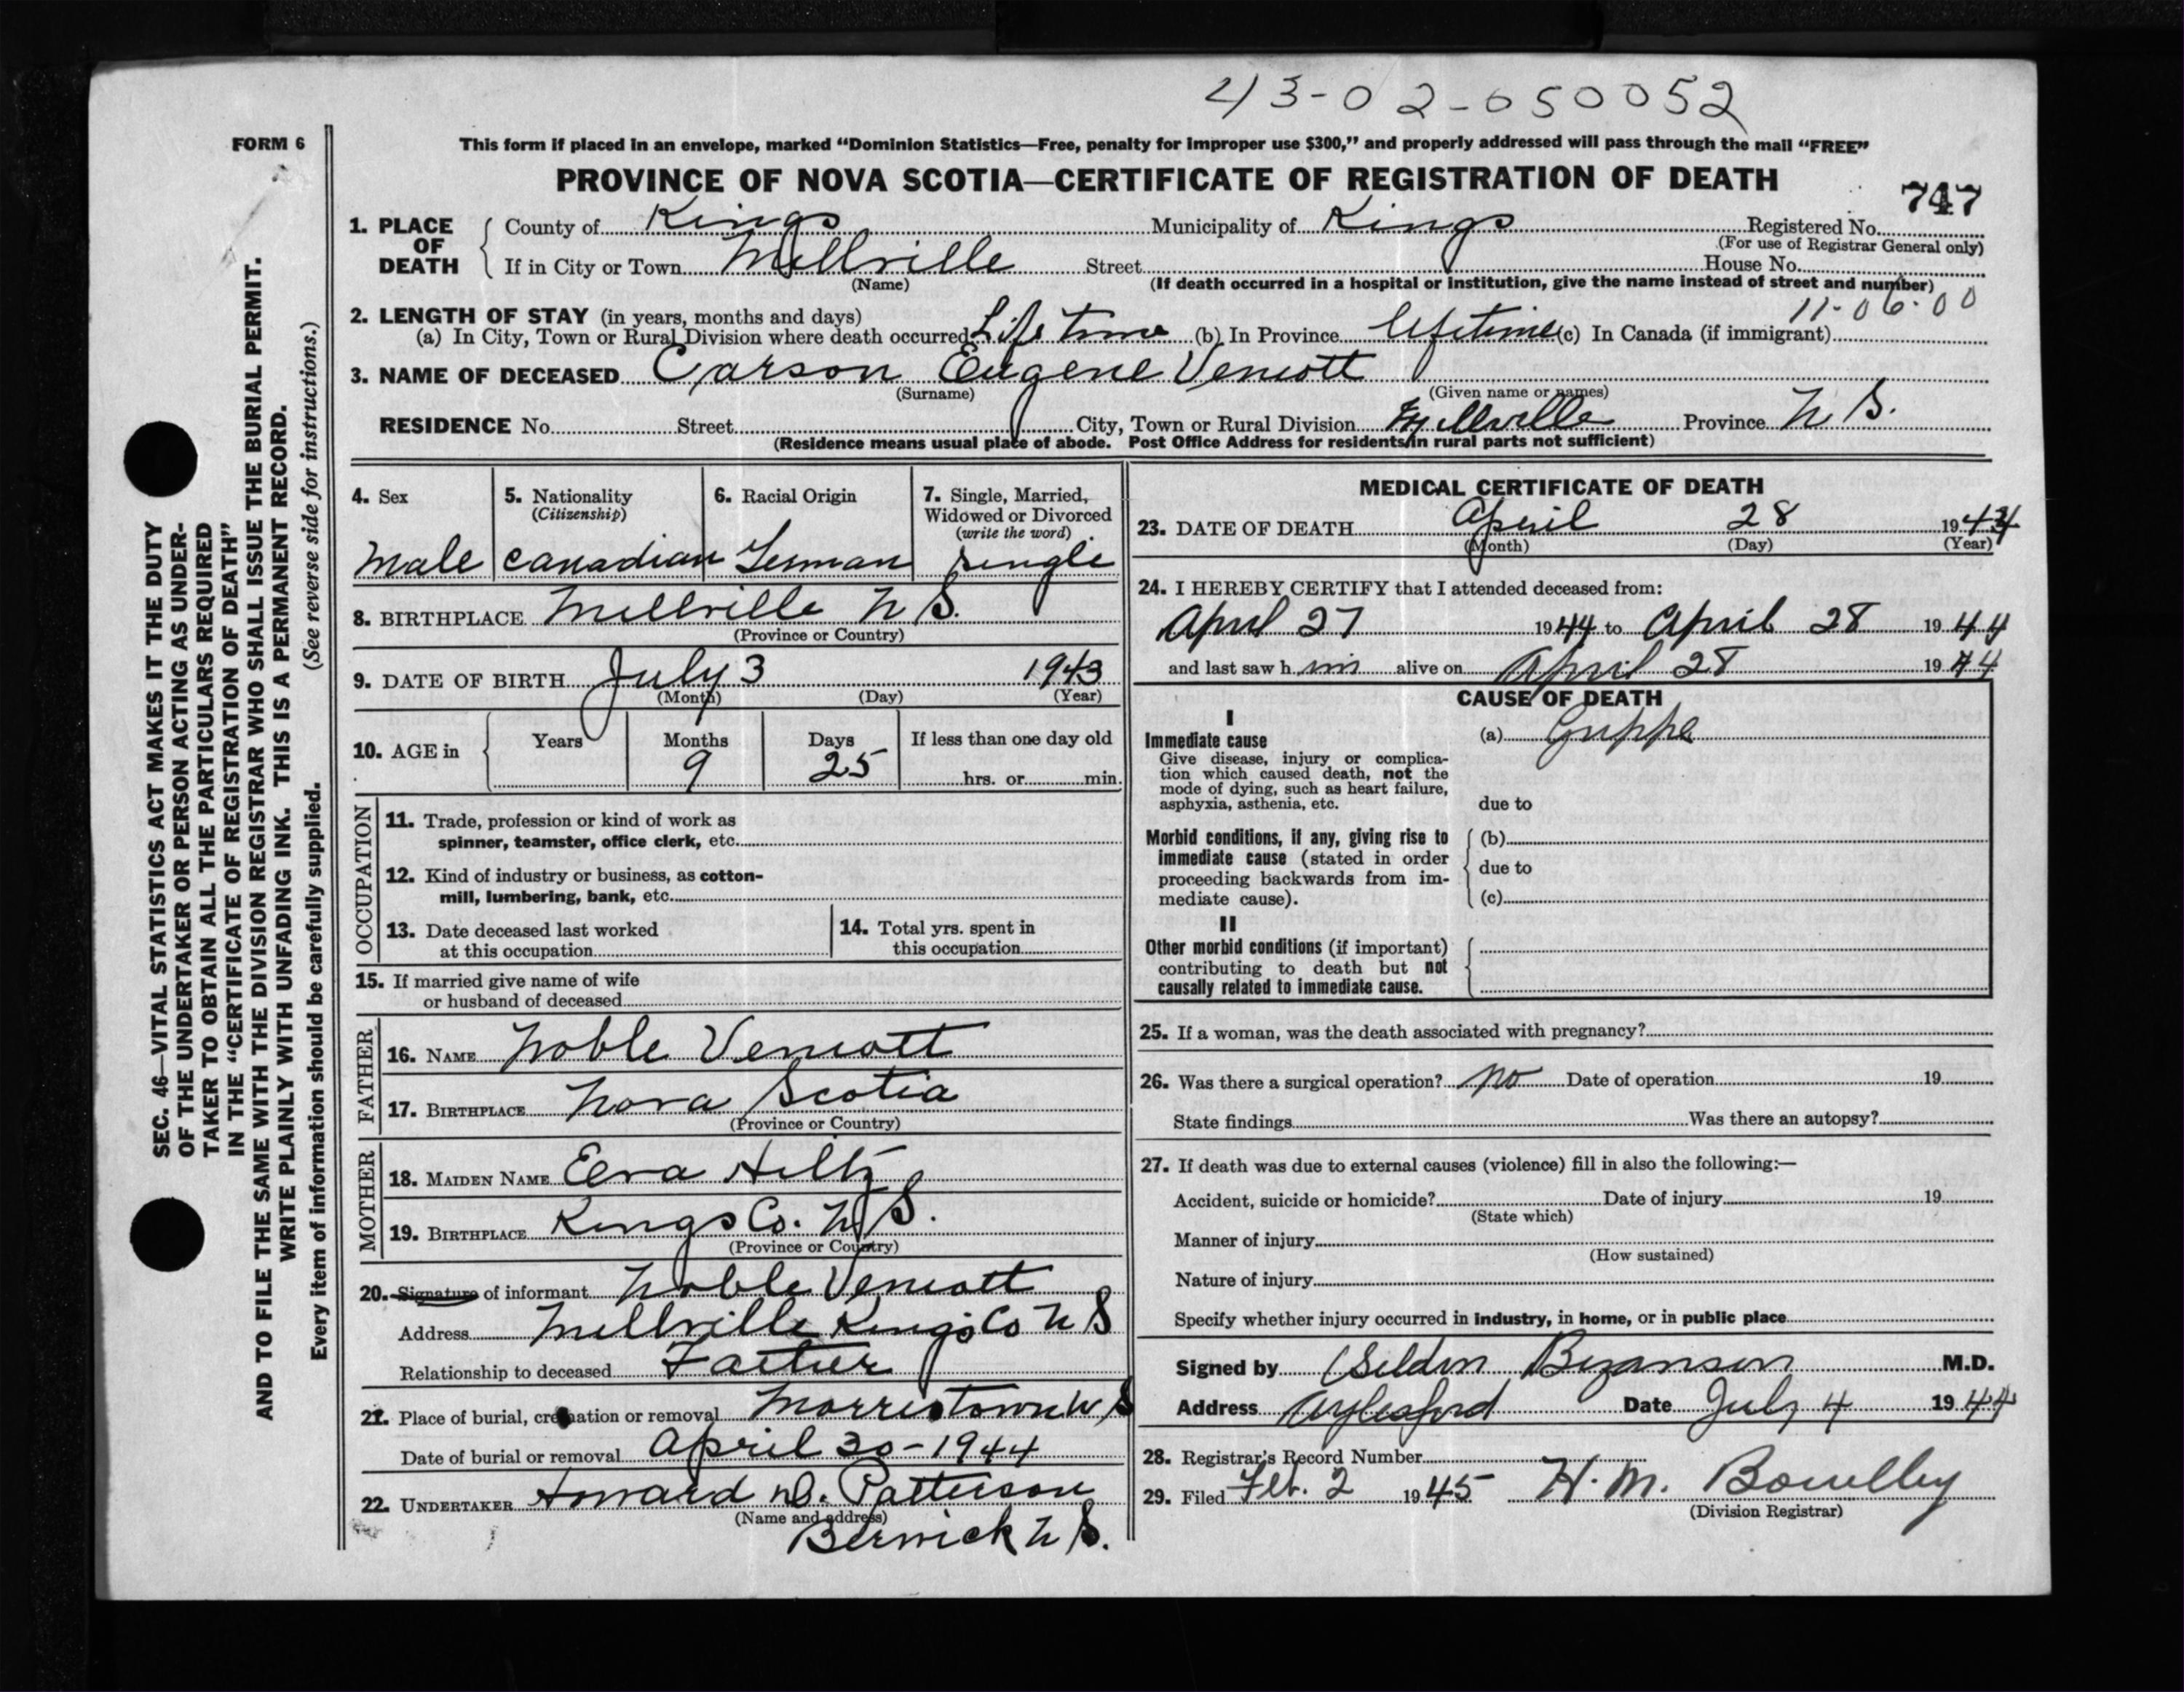 43-02-050052
FORM 6
This form if placed in an envelope, marked “Dominion Statistics—Free, penalty for improper use $300,” and properly addressed will pass through the mail “FREE”
PROVINCE OF NOVA SCOTIA—CERTIFICATE OF REGISTRATION OF DEATH
747
1. PLACE OF DEATH
County of Kings Municipality of Kings Registered No.
(For use of Registrar General only)
If in City or Town Millville Street House No.
(Name) (If death occurred in a hospital or institution, give the name instead of street and number)
11-06-00
2. LENGTH OF STAY (in years, months and days)
(a) In City, Town or Rural Division where death occurred Life time (b) In Province lifetime (c) In Canada (if immigrant)
3. NAME OF DECEASED Carson Eugene Veniott
(Surname) (Given name or names)
RESIDENCE No. Street City, Town or Rural Division Millville Province N S.
(Residence means usual place of abode. Post Office Address for residents in rural parts not sufficient)
4. Sex
Male
5. Nationality
(Citizenship)
Canadian
6. Racial Origin
German
7. Single, Married,
Widowed or Divorced
(write the word)
single
8. BIRTHPLACE Millville N S.
(Province or Country)
9. DATE OF BIRTH July 3 1943
(Month) (Day) (Year)
10. AGE in Years Months Days If less than one day old
9 25 hrs. or min.
OCCUPATION
11. Trade, profession or kind of work as
spinner, teamster, office clerk, etc.
12. Kind of industry or business, as cotton-
mill, lumbering, bank, etc.
13. Date deceased last worked
at this occupation
14. Total yrs. spent in
this occupation
15. If married give name of wife
or husband of deceased
FATHER
16. NAME Noble Veniott
17. BIRTHPLACE Nova Scotia
(Province or Country)
MOTHER
18. MAIDEN NAME Hiltz
19. BIRTHPLACE Kings Co. N S.
(Province or Country)
20. Signature of informant Noble Veniott
Address Millville Kings Co N S
Relationship to deceased Father
21. Place of burial, cremation or removal Morristown N S
Date of burial or removal April 30-1944
22. UNDERTAKER Howard D. Patterson
(Name and address)
Berwick N S.
MEDICAL CERTIFICATE OF DEATH
23. DATE OF DEATH April 28 1944
(Month) (Day) (Year)
24. I HEREBY CERTIFY that I attended deceased from:
April 27 1944 to April 28 1944
and last saw h im alive on April 28 1944
CAUSE OF DEATH
I
Immediate cause
Give disease, injury or complica-
tion which caused death, not the
mode of dying, such as heart failure,
asphyxia, asthenia, etc.
(a) Grippe
due to
Morbid conditions, if any, giving rise to
immediate cause (stated in order
proceeding backwards from im-
mediate cause).
(b)
due to
(c)
II
Other morbid conditions (if important)
contributing to death but not
causally related to immediate cause.
25. If a woman, was the death associated with pregnancy?
26. Was there a surgical operation? no Date of operation 19
State findings Was there an autopsy?
27. If death was due to external causes (violence) fill in also the following:—
Accident, suicide or homicide? Date of injury 19
(State which)
Manner of injury
(How sustained)
Nature of injury
Specify whether injury occurred in industry, in home, or in public place
Signed by Seldon Bezanson M.D.
Address Aylesford Date July 4 1944
28. Registrar's Record Number
29. Filed Feb. 2 1945 H. M.
(Division Registrar)
SEC. 46—VITAL STATISTICS ACT MAKES IT THE DUTY
OF THE UNDERTAKER OR PERSON ACTING AS UNDER-
TAKER TO OBTAIN ALL THE PARTICULARS REQUIRED
IN THE “CERTIFICATE OF REGISTRATION OF DEATH”
AND TO FILE THE SAME WITH THE DIVISION REGISTRAR WHO SHALL ISSUE THE BURIAL PERMIT.
WRITE PLAINLY WITH UNFADING INK. THIS IS A PERMANENT RECORD.
Every item of information should be carefully supplied. (See reverse side for instructions.)